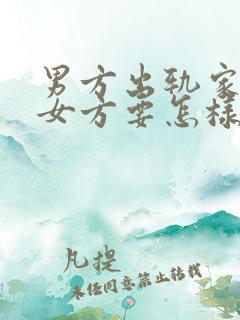 男方出轨家
女方要怎样
凡提
未经同意禁止转载